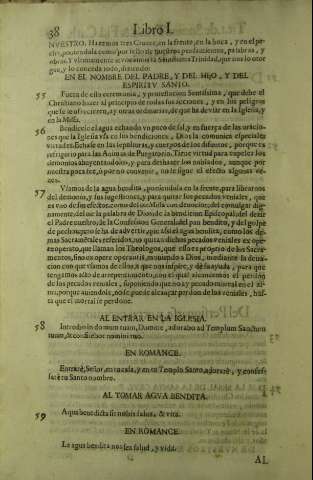 38 Libro I.
NVESTRO. Hazemos tres Cruzes, en la frente, en la boca, y en el pe-
cho, poniendolas como por sello de nuestros pensamientos, palabras, y
obras. Y vltimamente invocamos la Santissima Trinidad, que nos lo otor
gue, y lo conceda todo, diziendo:
EN EL NOMBRE DEL PADRE, Y DEL HIJO, Y DEL
ESPIRITV SANTO.
55 Fuera de esta ceremonia, y protestacion Santissima, que debe el
Christiano hazer al principio de todas sus acciones, y en los peligros
que se le ofrecieren, ay otras ordinarias, de que ha de vsar en la Iglesia, y
en la Missa.
56 Bendicese el agua echando vn poco de sal, y en fuerça de las oracio-
nes que la Iglesia vsa en las bendiciones, Dios la comunica especiales
virtudes. Echase en las sepulturas, y cuerpos de los difuntos, porque es
refrigerio para las Animas de Purgatorio. Tiene virtud para expeler los
demonios ahuyentandolos, y para deshazer los nublados, aunque por
nuestra poca fee, ù por no convenir, no se sigue el efecto algunas ve-
zes.
57 Vsamos de la agua bendita, poniendola en la frente, para librarnos
del demonio, y sus sugestiones, y para quitar los pecados veniales, que
es vno de sus efectos: como de oìr Missa con devocion; del comulgar dig-
namente; del oìr la palabra de Dios; de la bendicion Episcopal; del dezir
el Padre nuestro; de la Confession General; del pan bendito, y del golpe
de pechos; pero se ha de advertir, que assi el agua bendita, como los de-
mas Sacramentales referidos, no quitan dichos pecados veniales ex ope-
re operato, que llaman los Theologos, que esso es proprio de los Sacra-
mentos, sino ex opere operantis, moviendo à Dios, mediante la devo-
cion con que vsamos de ellos, à que nos inspire, y dè su ayuda, para que
tengamos acto de arrepentimiento, por el qual alcancemos el perdon
de los pecados veniales, suponiendo que no ay pecado mortal en el al-
ma, porque auiendolo, no se puede alcançar perdon de los veniales, has-
ta que el mortal se perdone.
AL ENTRAR EN LA IGLESIA.
58 Introibo in domum tuam, Domine, adorabo ad Templum Sanctum
tuum, & confitebor nomini tuo.
EN ROMANCE.
Entrarè, Señor, en tu casa, y en tu Templo Santo, adorarè, y confes-
sarè tu Santo nombre.
AL TOMAR AGVA BENDITA.
59 Aqua benedicta sit nobis salus, & vita.
EN ROMANCE.
La agua bendita nos sea salud, y vida.
AL